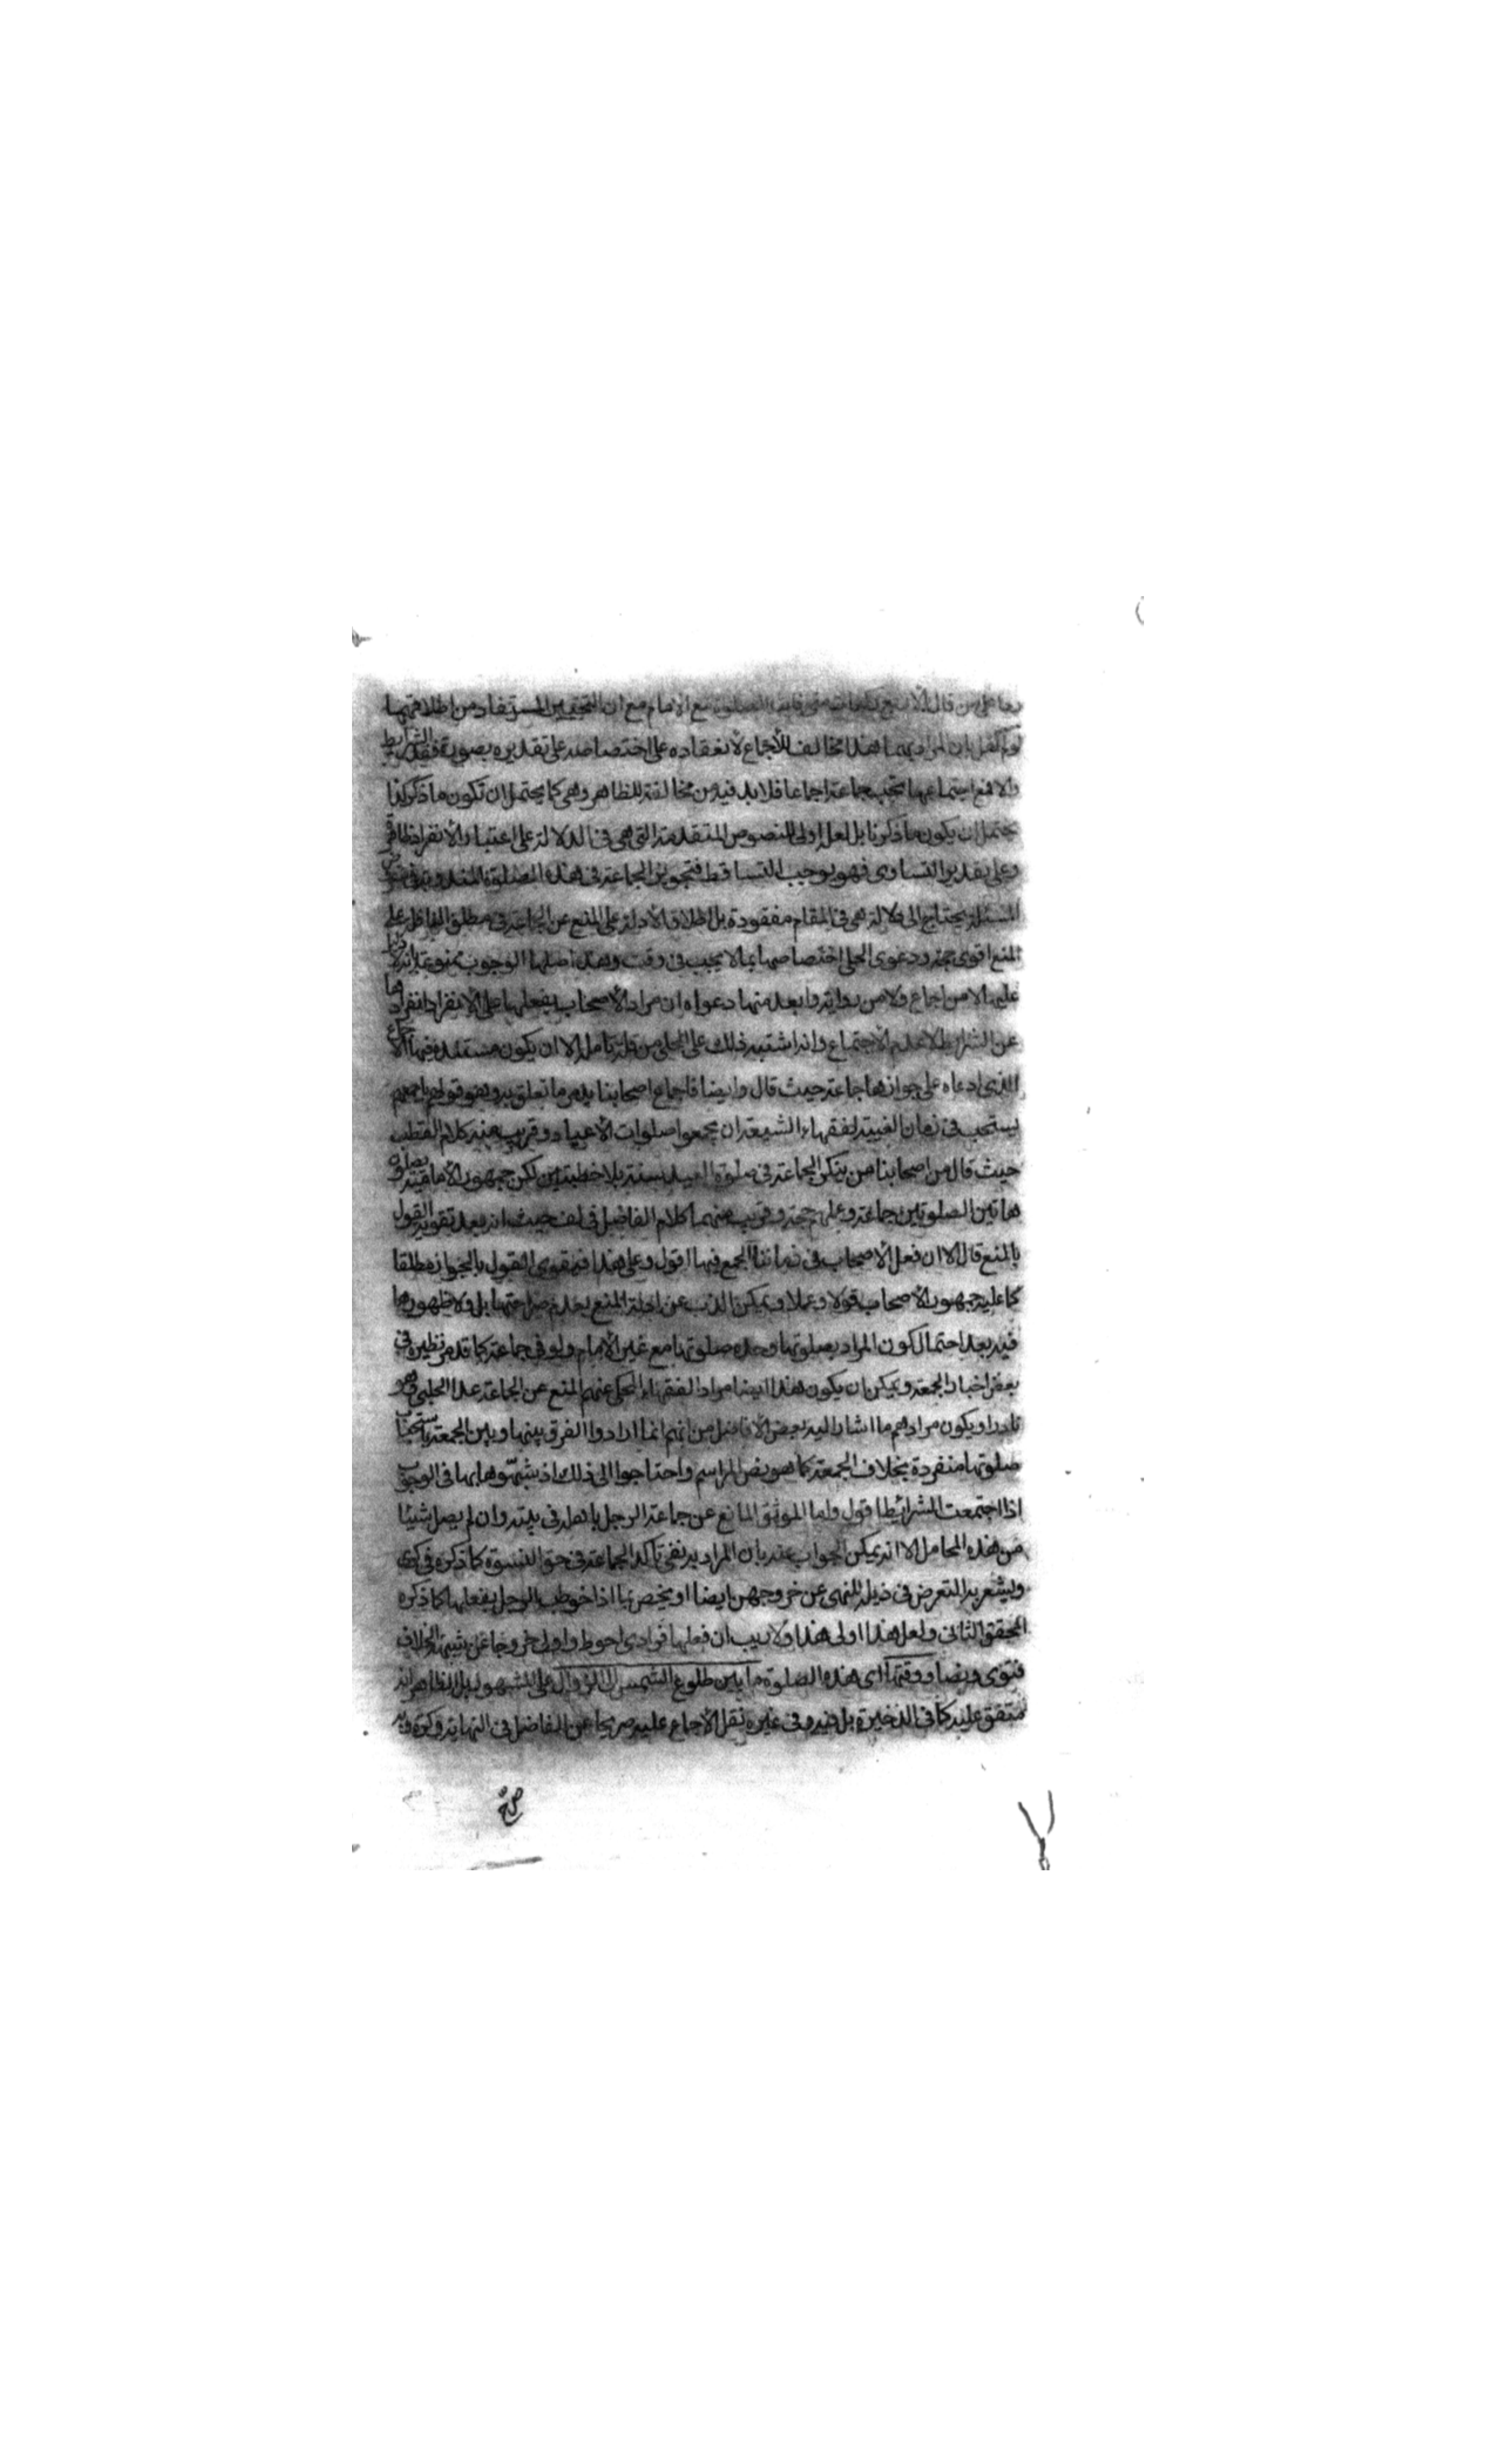 ردا على من قال لأربع ركعات متى فاتت الصلوة مع الامام مع ان التخيير المستفاد من اطلاقهما
لو لم نقل بان المراد بهما هذا مخالف للأجماع لأنعقاده على اختصاصه على تقديره بصورة فقد الشرايط
والا فمع اجتماعها تجب جماعة اجماعا فلابد فيه من مخالفة للظاهر وهى كما يحتمل ان تكون ما ذكر كذا
يحتمل ان يكون ما ذكرنا بل لعله اولى للنصوص المتقدمة التى هى فى الدلالة على اعتبار الأنفراد ظاهرة
وعلى تقدير التساوى فهو يوجب التساقط فتجويز الجماعة فى هذه الصلوة المندوبة فى
المسئلة يحتاج الى دلالة هى فى المقام مفقودة بل اطلاق الأدلة على المنع عن الجماعة فى مطلق النافلة على
المنع اقوى حجة ودعوى الحلى اختصاصها بما لا يجب فى وقت وهذه اصلها الوجوب ممنوعة لانه لا دليل
عليها لا من اجماع ولا من رواية وابعد منها دعواه ان مراد الأصحاب بفعلها على الأنفراد انفرادها
عن الشرايط لا عدم الأجتماع وانه اشتبه ذلك على الحلبى من قلة تأمله الا ان يكون مستنده فيها الأجماع
الذى ادعاه على جوازها جماعة حيث قال وايضا فاجماع اصحابنا يدمر ما تعلق به وهو قولهم باجمعهم
يستحب فى زمان الغيبة لفقهاء الشيعة ان يجمعوا صلوات الأعياد وقريب منه كلام القطب
حيث قال من اصحابنا من ينكر الجماعة فى صلوة العيد سنة بلا خطبتين لكن جمهور الأمامية يصلون
هاتين الصلوتين جماعة وعملهم حجة وقريب منهما كلام الفاضل فى لف حيث انه بعد تقوية القول
بالمنع قال الا ان فعل الأصحاب فى زماننا الجمع فيها اقول وعلى هذا فيقوى القول بالجواز مطلقا
كما عليه جمهور الأصحاب قولا وعملا ويمكن الذب عن ادلة المنع بعدم صراحتها بل ولا ظهورها
فيه بعد احتمال كون المراد بصلوتها وحده صلوتها مع غير الأمام ولو فى جماعة كما قد مر نظيره فى
بعض اخبار الجمعة ويمكن ان يكون هذا ايضا مراد الفقهاء المحكى عنهم المنع عن الجماعة عدا الحلبى وهو
نادر او يكون مرادهم ما اشار اليه بعض الأفاضل من انهم انما ارادوا الفرق بينها وبين الجمعة باستحباب
صلوتها منفردة بخلاف الجمعة كما هو نص المراسم واحتاجوا الى ذلك اذ شبهوها بها فى الوجوب
اذا اجتمعت الشرائط اقول واما الموثق المانع عن جماعة الرجل باهله فى بيته وان لم يصل شيئا
من هذه المحامل الا انه يمكن الجواب عنه بان المراد به نفى تأكد الجماعة فى حق النسوة كما ذكره فى كرى
ويشعر به التعرض فى ذيله للنهى عن خروجهن ايضا او يخص بما اذا خوطب الرجل بفعلها كما ذكره
المحقق الثانى ولعل هذا اولى هذا ولا ريب ان فعلها فرادى احوط واولى خروجا عن شبهة الخلاف
فتوى ونصا ووقتها اى هذه الصلوة ما بين طلوع الشمس الى الزوال على المشهور بل الظاهر انه
متفق عليه كما فى الذخيرة بل فيه وفى غيره نقل الأجماع عليه صريحا عن الفاضل فى النهاية وكره